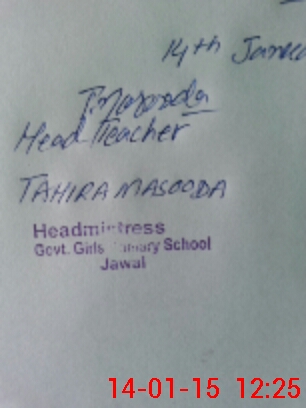 14th
T.Masooda
Head Teacher
TAHIRA MASOODA
Headmistress
Govt. Girls Primary School
Jawal
14-01-15 12:25